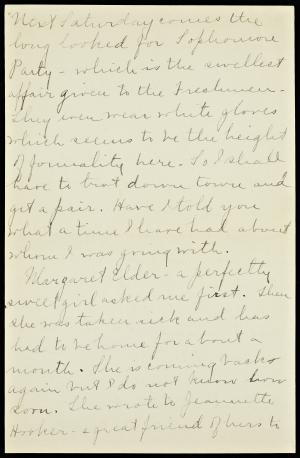 "Next Saturday comes the
long looked for Sophomore
Party - which is the swellest
affair given to the Freshmen.
They even wear white gloves
which seems to be the height
of formality here. So I shall
have to trot down town and
get a pair. Have I told you
what a time I have had about
whom I was going with.
Margaret Elder - a perfectly
sweet girl asked me first. Then
she was taken sick and has
had to be home for about a
month. She is coming back
again but I do not know how
soon. She wrote to Jeannette
Hooker - a great friend of hers to